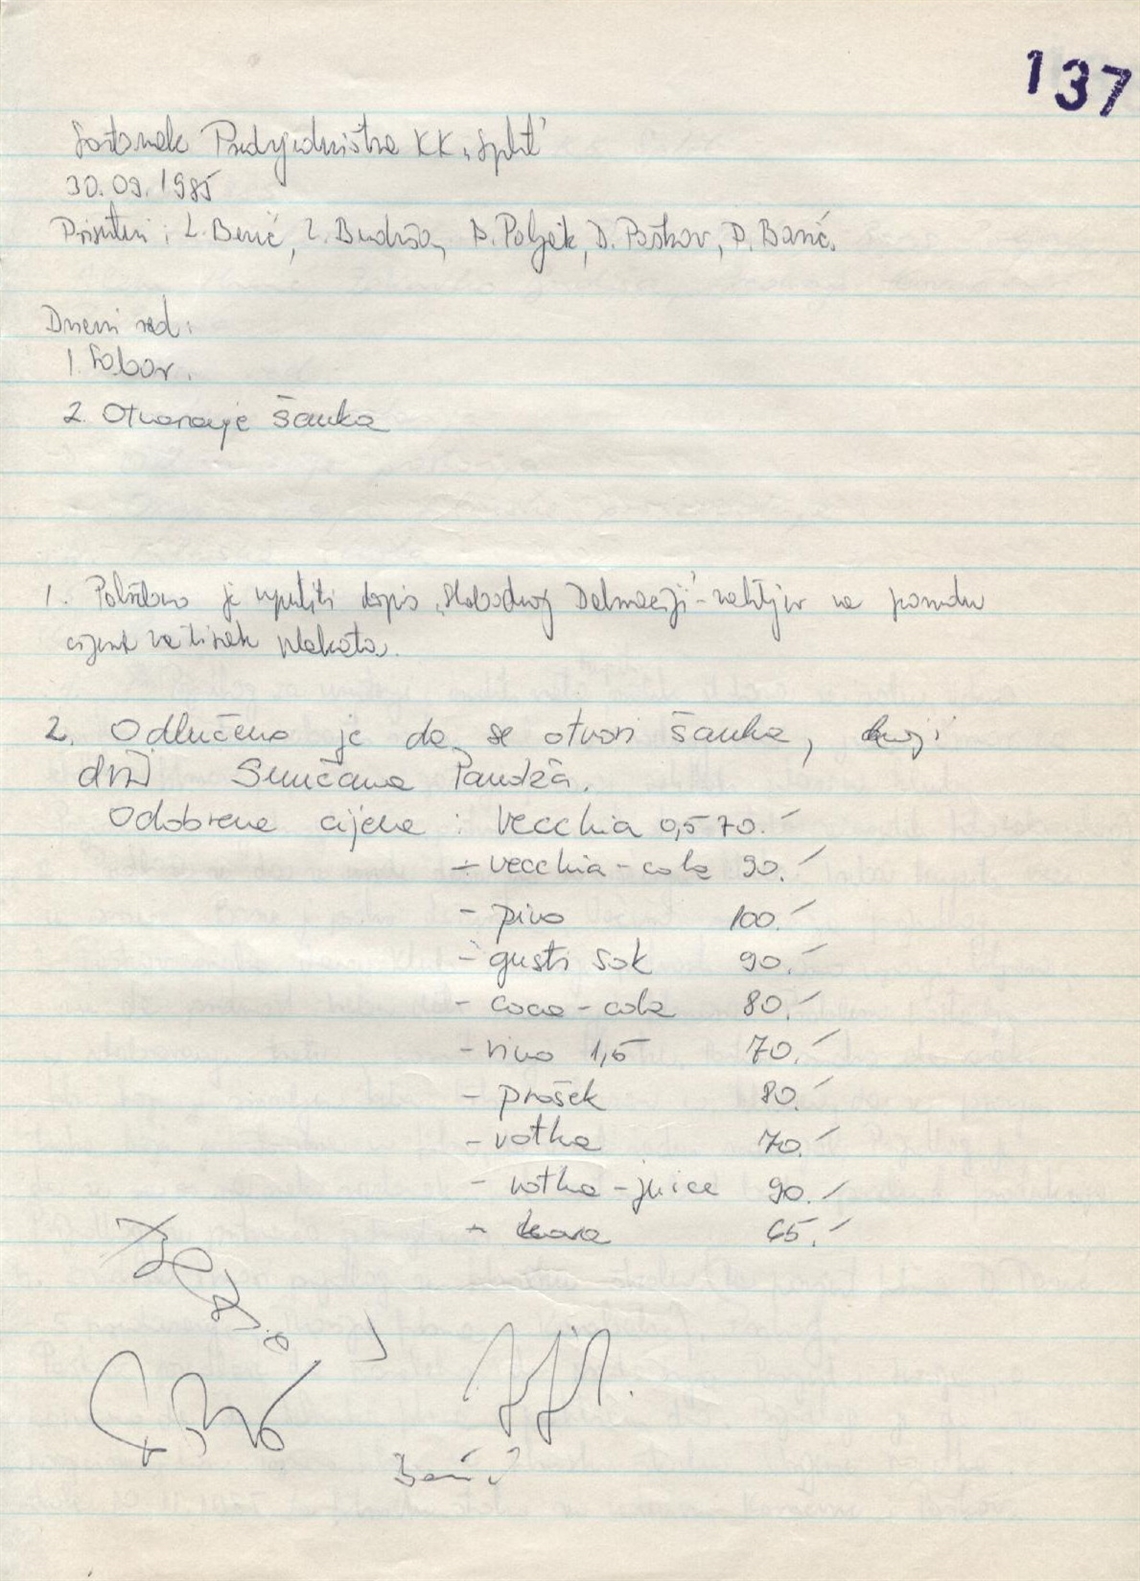 137
Sastanak Predsjedništva KK „Split"
30.09.1985
Prisutni: L. Berić, Z. Budiša, D. Poljak, D. Paškov, D. Barić.
Dnevni red:
1. Sabor.
2. Otvaranje šanka
1. Potrebno je uputiti dopis „Slobodnoj Dalmaciji" - zahtjev za ponudu
cijene za tisak plakata.
2. Odlučeno je da se otvori šanka, koji
drži Sunčana Pandža.
Odobrene cijene: vecchia 0,5 70.-
- vecchia-cola 90.-
- pivo 100.-
- gusti sok 90.-
- coca-cola 80.-
- vino 1,5 70.-
- prošek 80.-
- votka 70.-
- votka-juice 90.-
- kava 65.-
Barić